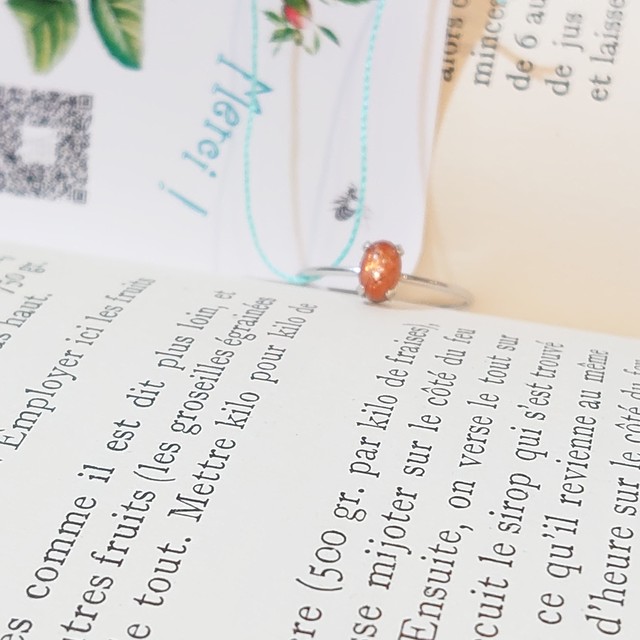 Merci !
alors
mince
de 6 au
de jus
et laisse
750 gr.
haut.
Employer ici les fruits
comme il est dit plus loin, et
fruits (les groseilles égrainées
tout. Mettre kilo pour kilo de
(500 gr. par kilo de fraises),
mijoter sur le côté du feu
Ensuite, on verse le tout sur
cuit le sirop qui s'est trouvé
ce qu'il revienne au même
d'heure sur le côté du feu